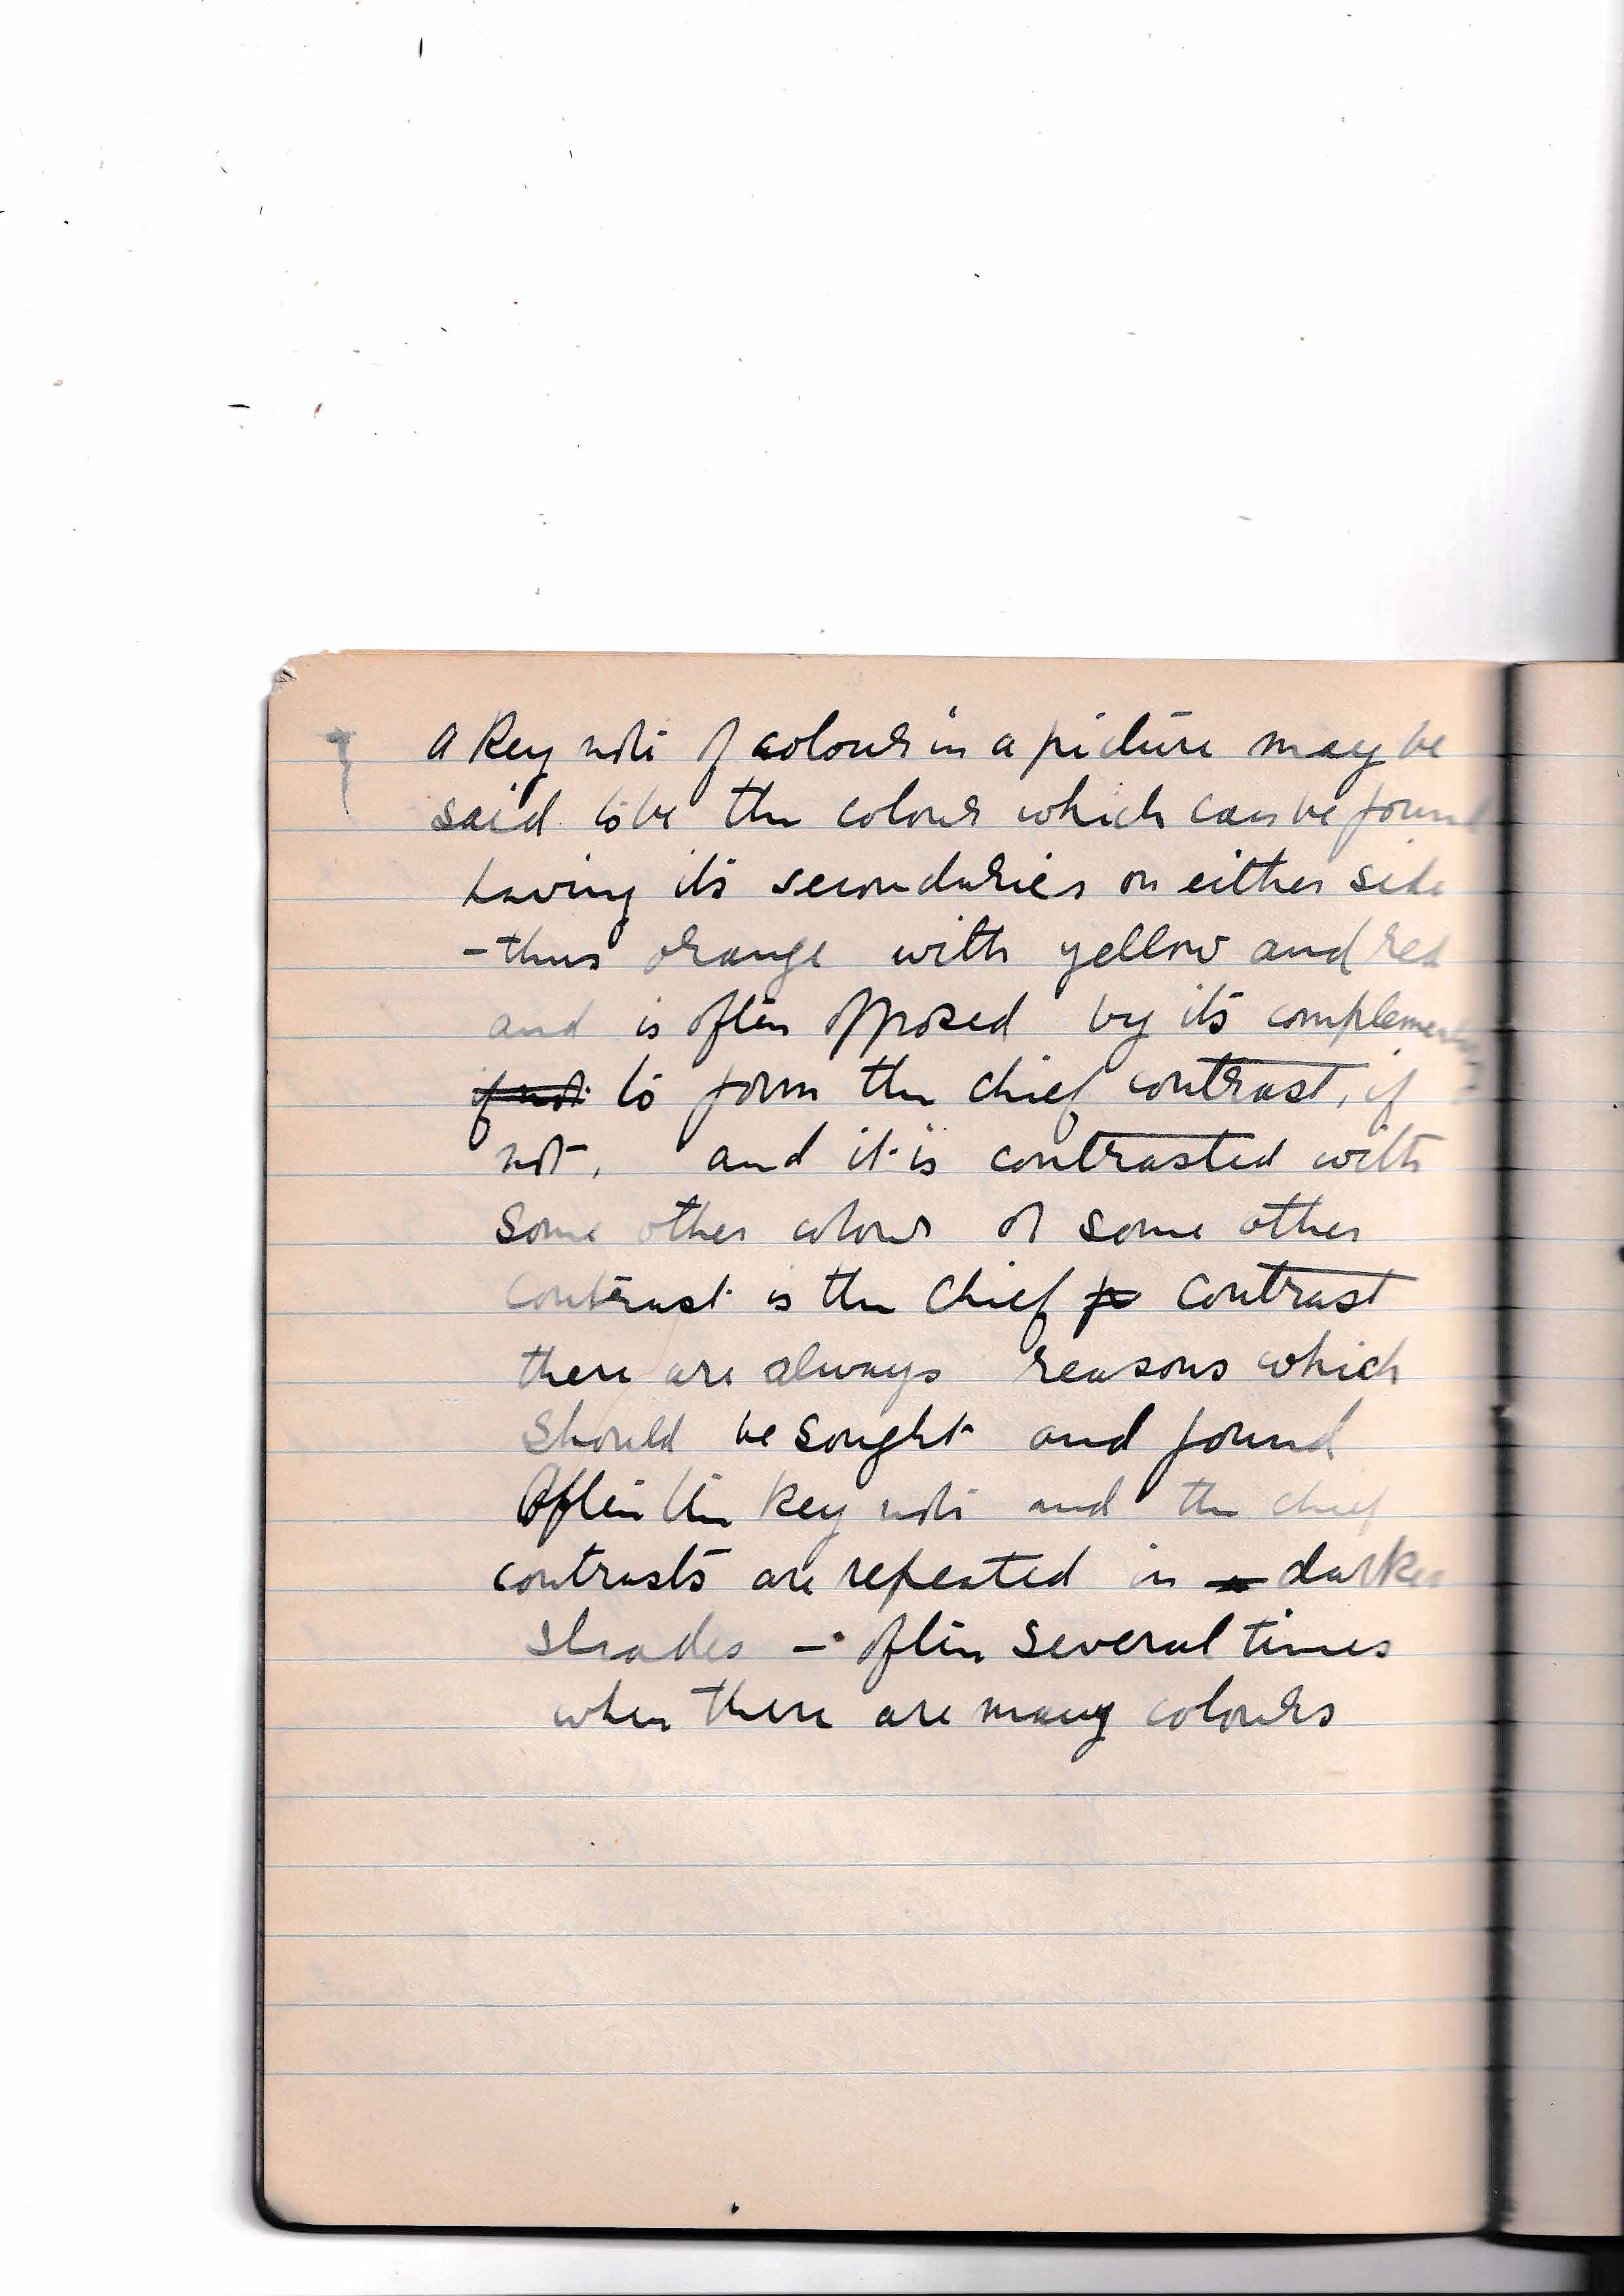 A Key note of colour in a picture may be
said to be the colour which can be found
having its secondaries on either side
- thus orange with yellow and red
and is often opposed by its complementary
if not to form the chief contrast, if
not, and it is contrasted with
some other colour or some other
contrast is the chief contrast
there are always reasons which
should be sought and found
Often the key note and the chief
contrasts are repeated in darker
shades - often several times
when there are many colours